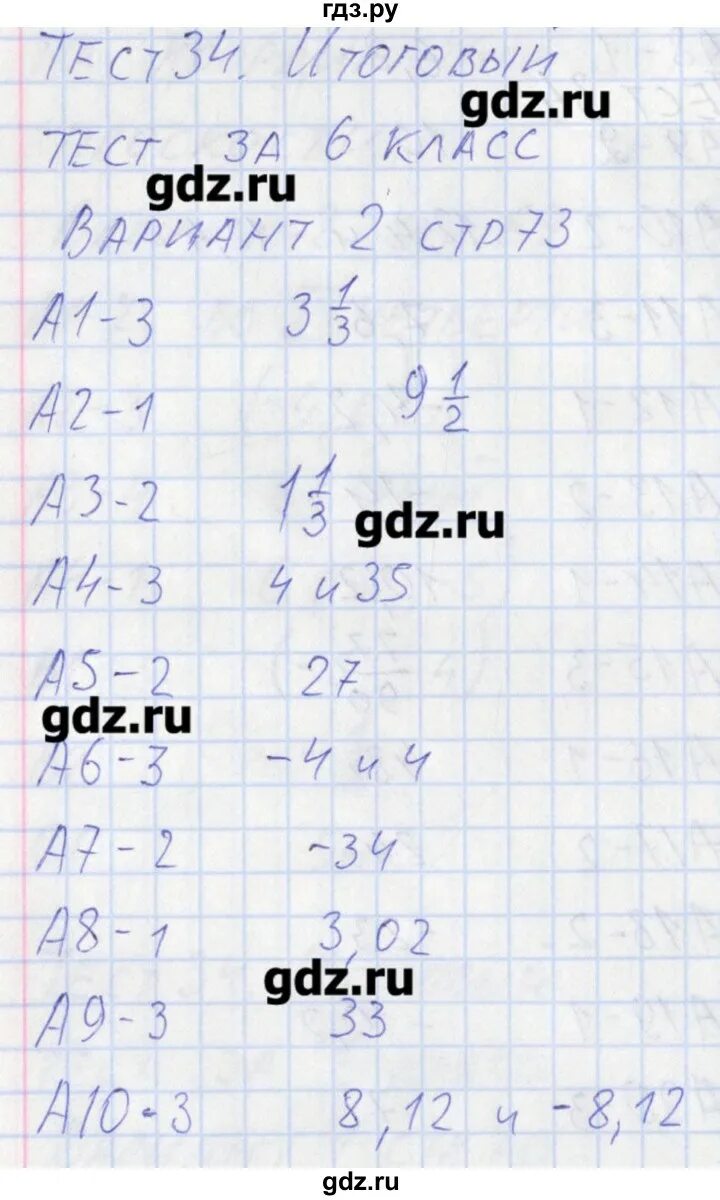 гдз.ру
ТЕСТ 34. Итоговый
gdz.ru
ТЕСТ ЗА 6 КЛАСС
gdz.ru
ВАРИАНТ 2 СТР 73
А1-3 3 1/3
А2-1 9 1/2
А3-2 1 1/3
gdz.ru
А4-3 4 и 35
А5-2 27
gdz.ru
А6-3 -4 и 4
А7-2 -34
А8-1 3,02
gdz.ru
А9-3 33
А10-3 8,12 и -8,12
gdz.ru